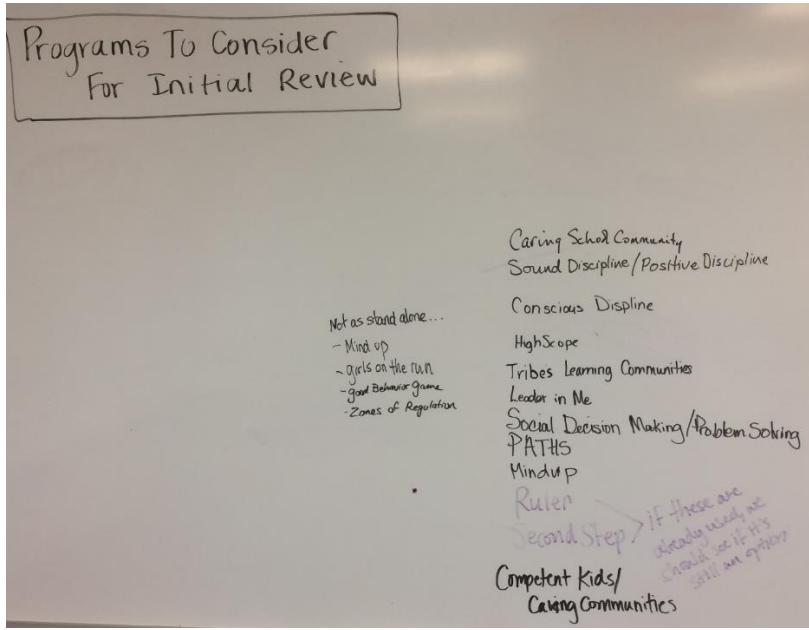 Programs To Consider
For Initial Review
Not as stand alone...
- Mind up
- girls on the run
- good Behavior Game
- Zones of Regulation
Caring School Community
Sound Discipline/Positive Discipline
Conscious Displine
HighScope
Tribes Learning Communities
Leader in Me
Social Decision Making/Problem Solving
PATHS
Mindup
Ruler
Second Step
if these are
already used, we
should see if it's
still an option
Competent Kids/
Caring Communities